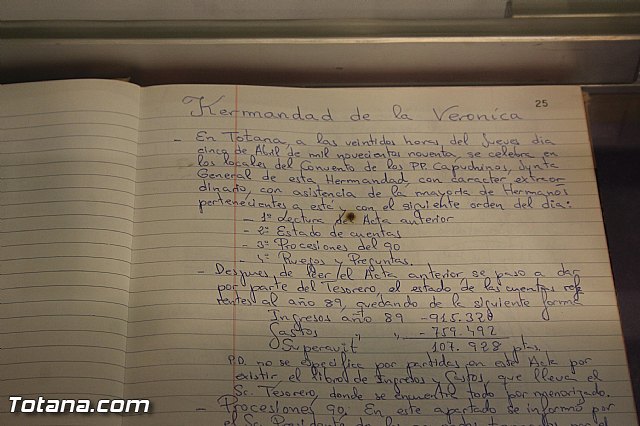 25
Hermandad de la Veronica
- En Totana, a las veintidos horas del Jueves dia
cinco de Abril de mil novecientos noventa, se celebra en
los locales del Convento de los PP. Capuchinos, Junta
General de esta Hermandad, con caracter extraor
dinario, con asistencia de la mayoria de Hermanos
pertenecientes a esta y con el siguiente orden del dia:
- 1º Lectura del Acta anterior
- 2º Estado de cuentas
- 3º Procesiones del 90
- 4º Ruegos y Preguntas.
- Despues de leer el Acta anterior se paso a dar
por parte del Tesorero, el estado de las cuentas refe
rentes al año 89, quedando de la siguiente forma
Ingresos año 89 - 915.320
Gastos " " 759.492
Superavit 107.928 ptas.
P.D. no se especifica por partidas en este Acta por
existir el libros de Ingresos y Gastos, que lleva el
Sr. Tesorero, donde se encuentra todo pormenorizado.
- Procesiones 90. En este apartado se informo por
el Sr. Presidente de
Totana.com